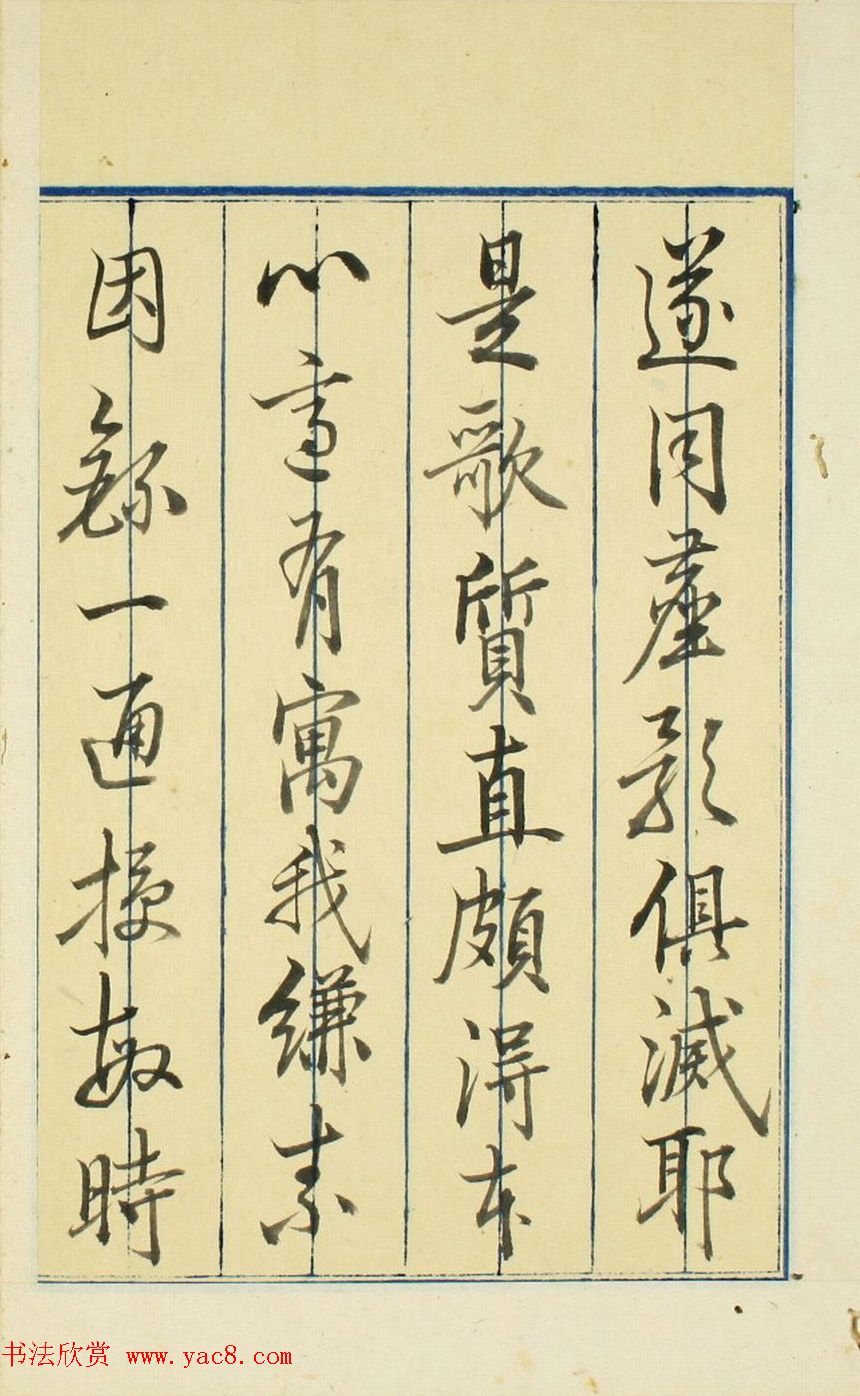 遂同塵影俱滅耶
是歌質直頗得本
心適有寓我縑素
因一通授敏時
书法欣赏 www.yac8.com